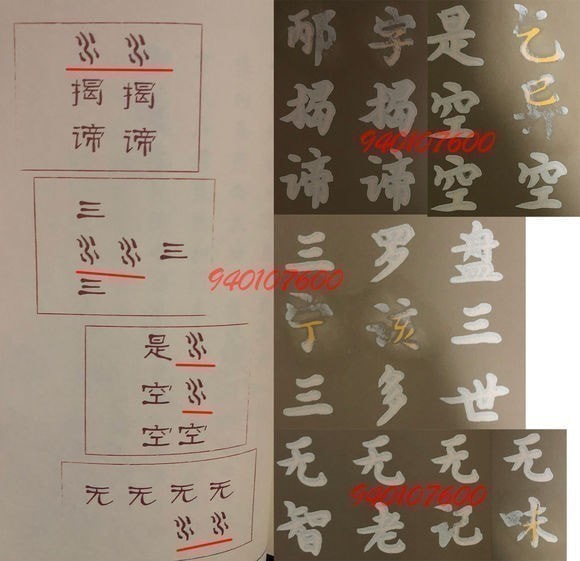 揭 揭
谛 谛
三
三
三
是
空
空 空
无 无 无 无
字 是
揭 揭 空
940107600
谛 谛 空 空
940107600
三 罗 盘
三
三 多 世
无 无 无 无
940107600
智 老 记 味